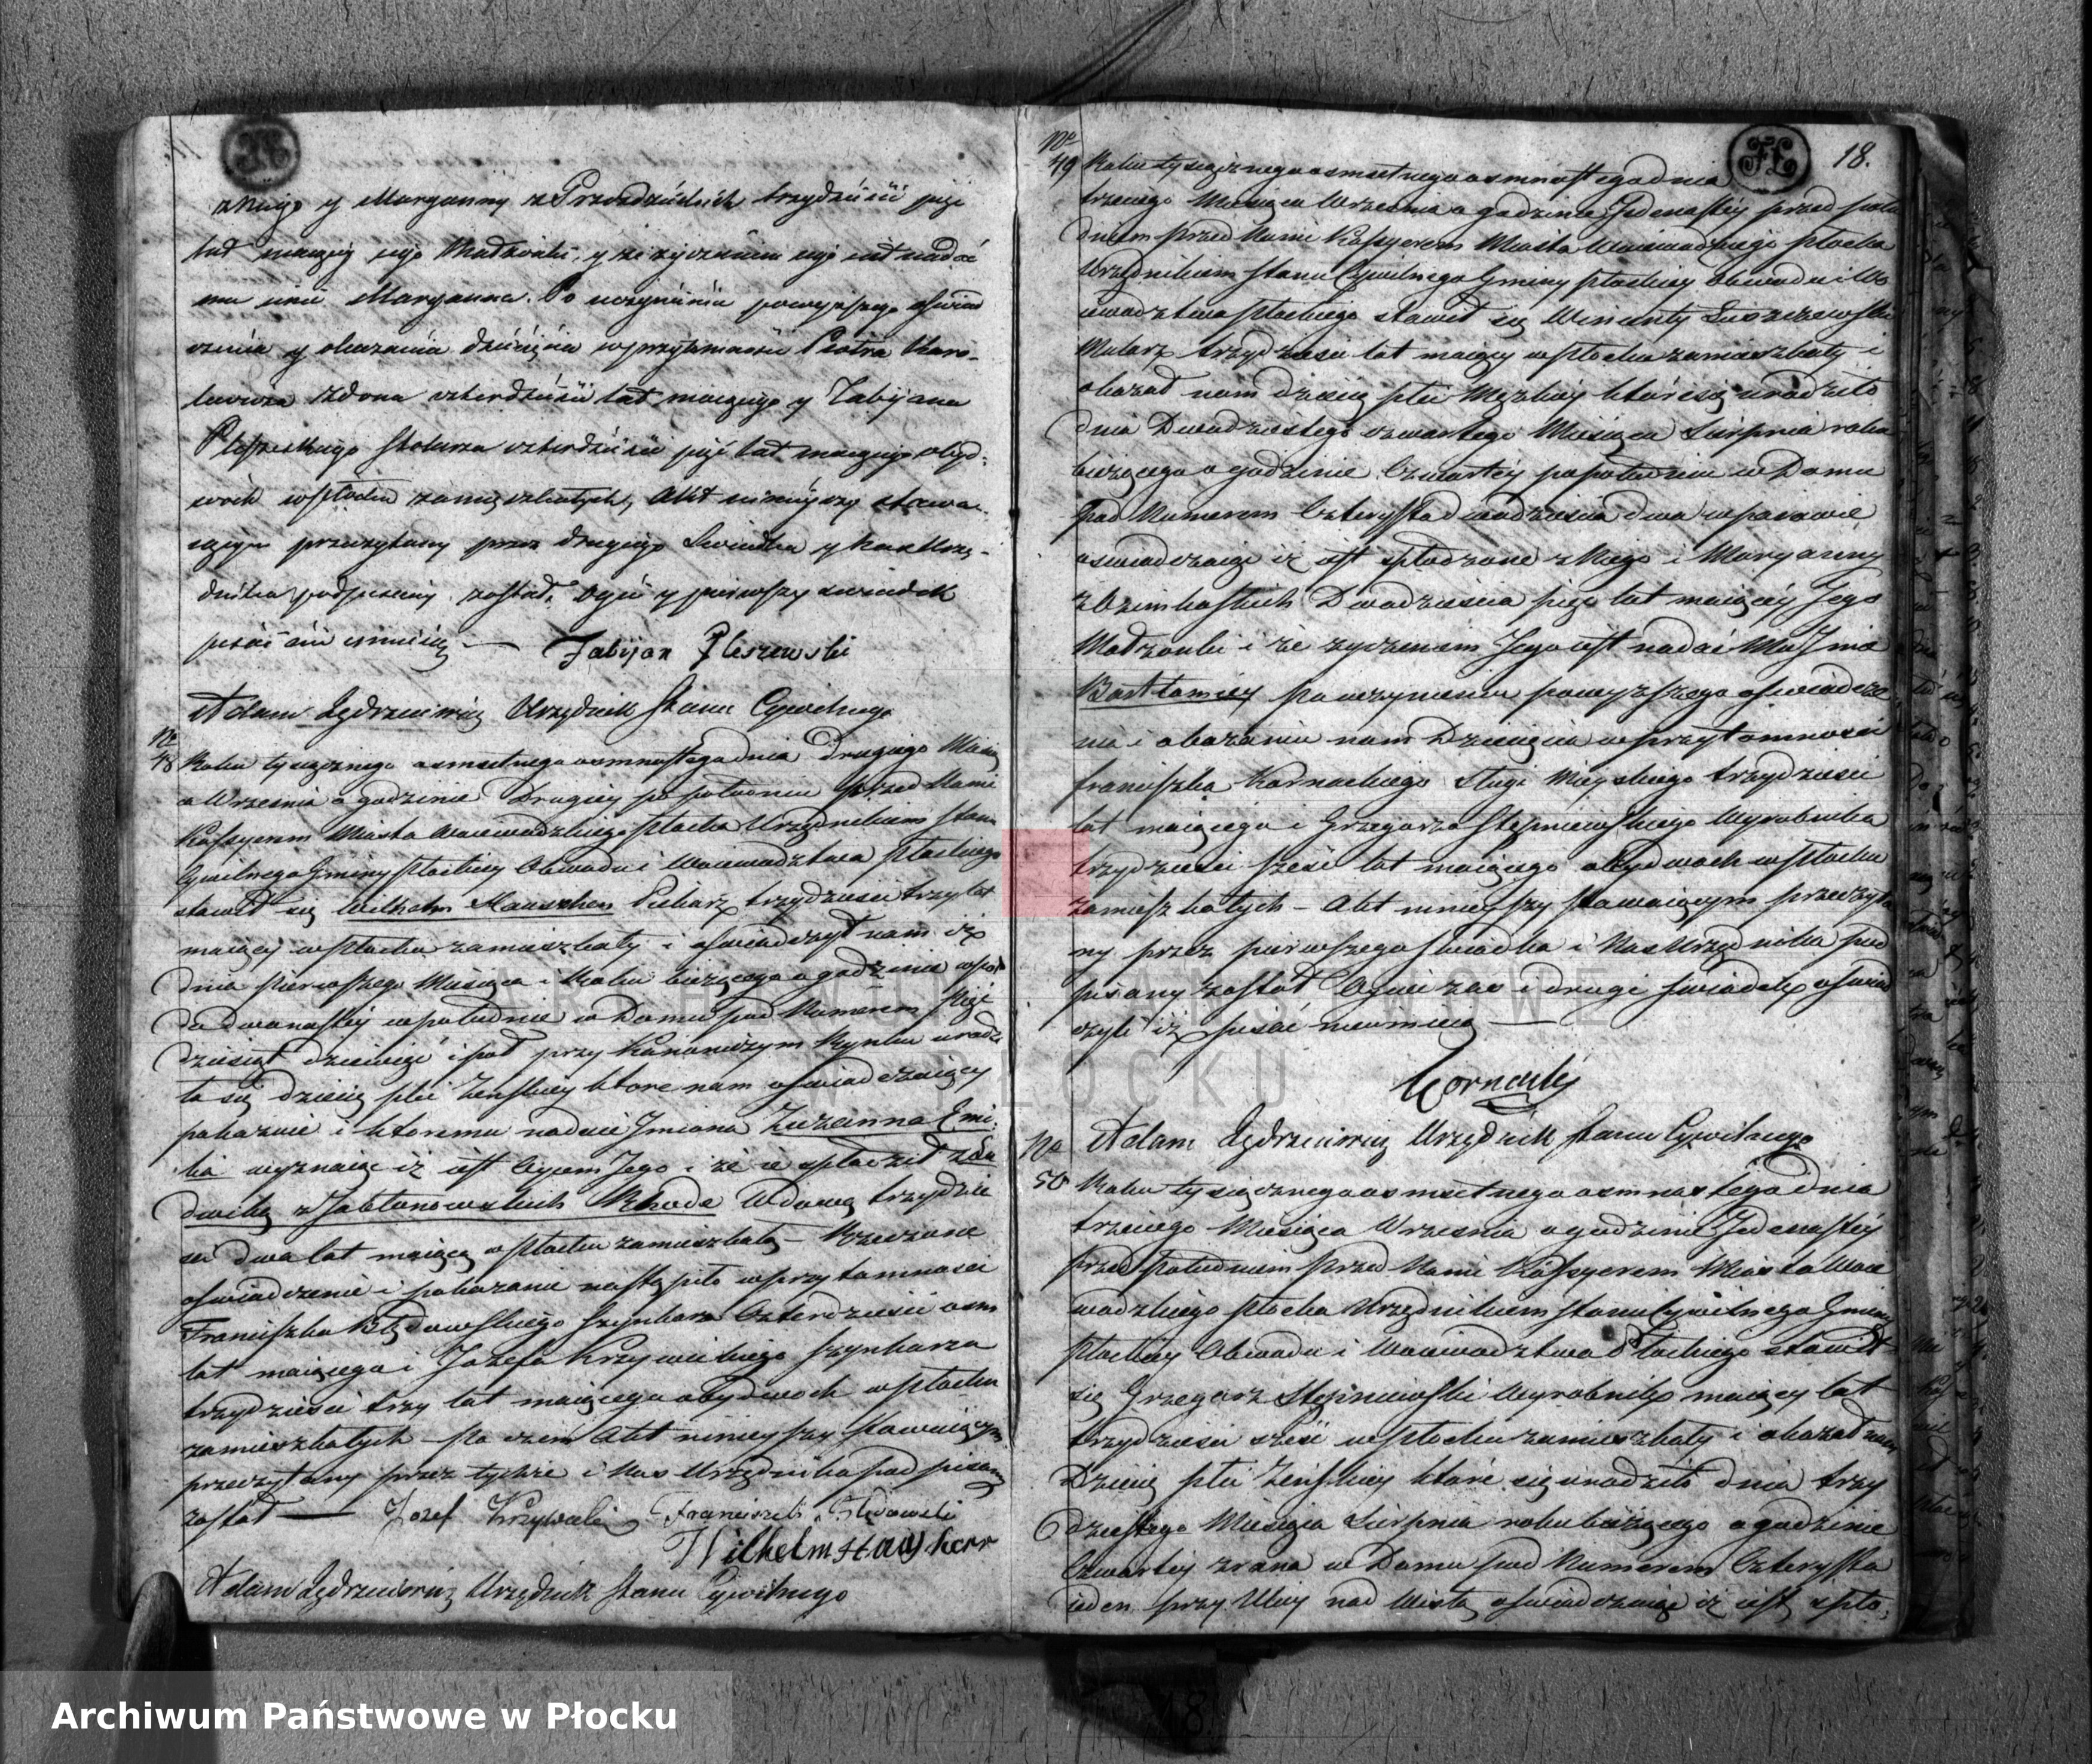 z niego y Maryanny z trzydzieści pięć
lat maiącey iego Małżonki, y że życzeniem iego iest nadać
mu imie Maryanna. Po uczynieniu powyższego oświad
czenia y okazaniu dziécięcia w przytomności Piotra
czterdzieści lat maiącego y Fabijana
Pleszewskiego Stolarza czterdzieści pięć lat maiącego obyd-
woch w Płocku zamięszkałych, Akt ninieyszy stawa-
iącym przeczytany przez drugiego Swiadka y Nas Urzę-
dnika podpisany został, Oyciec y pierwszy swiadek
pisać nie umieią —
Fabijan Pleszewski
Adam Jędrzeiewicz Urzędnik Stanu Cywilnego
No
48 Roku tysiącznego osmsetnego osmnastego dnia Drugiego Miesią
a Września o godzinie Drugiey po południu przed Nami
Kassyerem Miasta Woiewodzkiego Płocka Urzędnikiem Stanu
Cywilnego Gminy Płockiey Obwodu i Woiewodztwa Płockiego
stawił się Wilhelm Piekarz trzydzieści trzy lat
maiący w Płocku zamieszkały i oświadczył nam iż
dnia pierwszego Miesiąca i Roku bieżącego o godzinie
dwunastey w południe w Domu pod Numerem Pięć
dziesiąt dziewięć i poł przy Kanoniczym Rynku urodzi
ło się dziecię płci Zeńskiey ktore nam oświadczaiący
pokazuie i ktoremu nadaie Jmiona Zuzanna Emi-
lia wyznaiąc iż iest Oycem Jego i że ie spłodził z Lu
dwiką z Jabłonowskich Rhode Wdową trzydzie
ści dwa lat maiącą w Płocku zamieszkałą — Rzeczone
oświadczenie i pokazanie nastąpiło w przytomności
Franciszka Błędowskiego Szynkarza Czterdzieści osm
lat maiącego i Jozefa Krzywickiego Szynkarza
trzydzieści trzy lat maiącego obydwoch w Płocku
zamieszkałych — Po czem Akt ninieyszy stawaiącym
przeczytany przez tychże i Nas Urzędnika podpisany
został —
Jozef Franciszek Błędowski
Wilhelm
Adam Jędrzeiewicz Urzędnik Stanu Cywilnego
18.
No
49 Roku tysiącznego osmsetnego osmnastego dnia
trzeciego Miesiąca Września o godzinie Jedenastéy przed połu
dniem przed Nami Kassyerem Miasta Woiewodzkiego Płocka
Urzędnikiem Stanu Cywilnego Gminy Płockiey Obwodu i Wo
iewodztwa Płockiego stawił się Wincenty
Mularz trzydzieści lat maiący w Płocku zamieszkały i
okazał nam dziecię płci Męzkiey które się urodziło
dnia Dwudziestego czwartego Miesiąca Sierpnia roku
bieżącego o godzinie Czwartéy po południu w Domu
pod Numerem Czterysta dwadzieścia dwa w parowie
oświadczaiąc iż iest spłodzone z Niego i Maryanny
z Dwadzieścia pięć lat maiącéy Jego
Małżonki i że życzeniem Jego iest nadać Mu Jmie
Bartłomiey po uczynieniu powyższego oświadcze
nia i okazaniu nam Dziecięcia w przytomności
Franciszka Kornackiego Sługi Mieyskiego trzydzieści
lat maiącego i Grzegorza Stępniewskiego Wyrobnika
trzydzieści sześć lat maiącego obydwoch w Płocku
zamieszkałych — Akt ninieyszy stawaiącym przeczyta
ny przez pierwszego świadka i Nas Urzędnika pod
pisany został Oyciec zaś i drugi świadek oświad
czyli iż pisać nieumieią —
Kornacki
Adam Jędrzeiewicz Urzędnik Stanu Cywilnego
No
50 Roku tysiącznego osmsetnego osmnastego dnia
trzeciego Miesiąca Września o godzinie Jedenastéy
przed południem przed Nami Kassyerem Miasta Woie
wodzkiego Płocka Urzędnikiem Stanu Cywilnego Gminy
Płockiey Obwodu i Woiewodztwa Płockiego stawił
się Grzegorz Stępniewski Wyrobnik maiący lat
trzydzieści sześć w Płocku zamieszkały i okazał nam
Dziecię płci Zeńskiey które się urodziło dnia trzy
dziestego Miesiąca Sierpnia roku bieżącego o godzinie
Czwartéy zrana w Domu pod Numerem Czterysta
ieden przy Ulicy nad Wisłą oświadczaiąc iż iest spło-
ARCHIWUM PAŃSTWOWE
W PŁOCKU
Archiwum Państwowe w Płocku